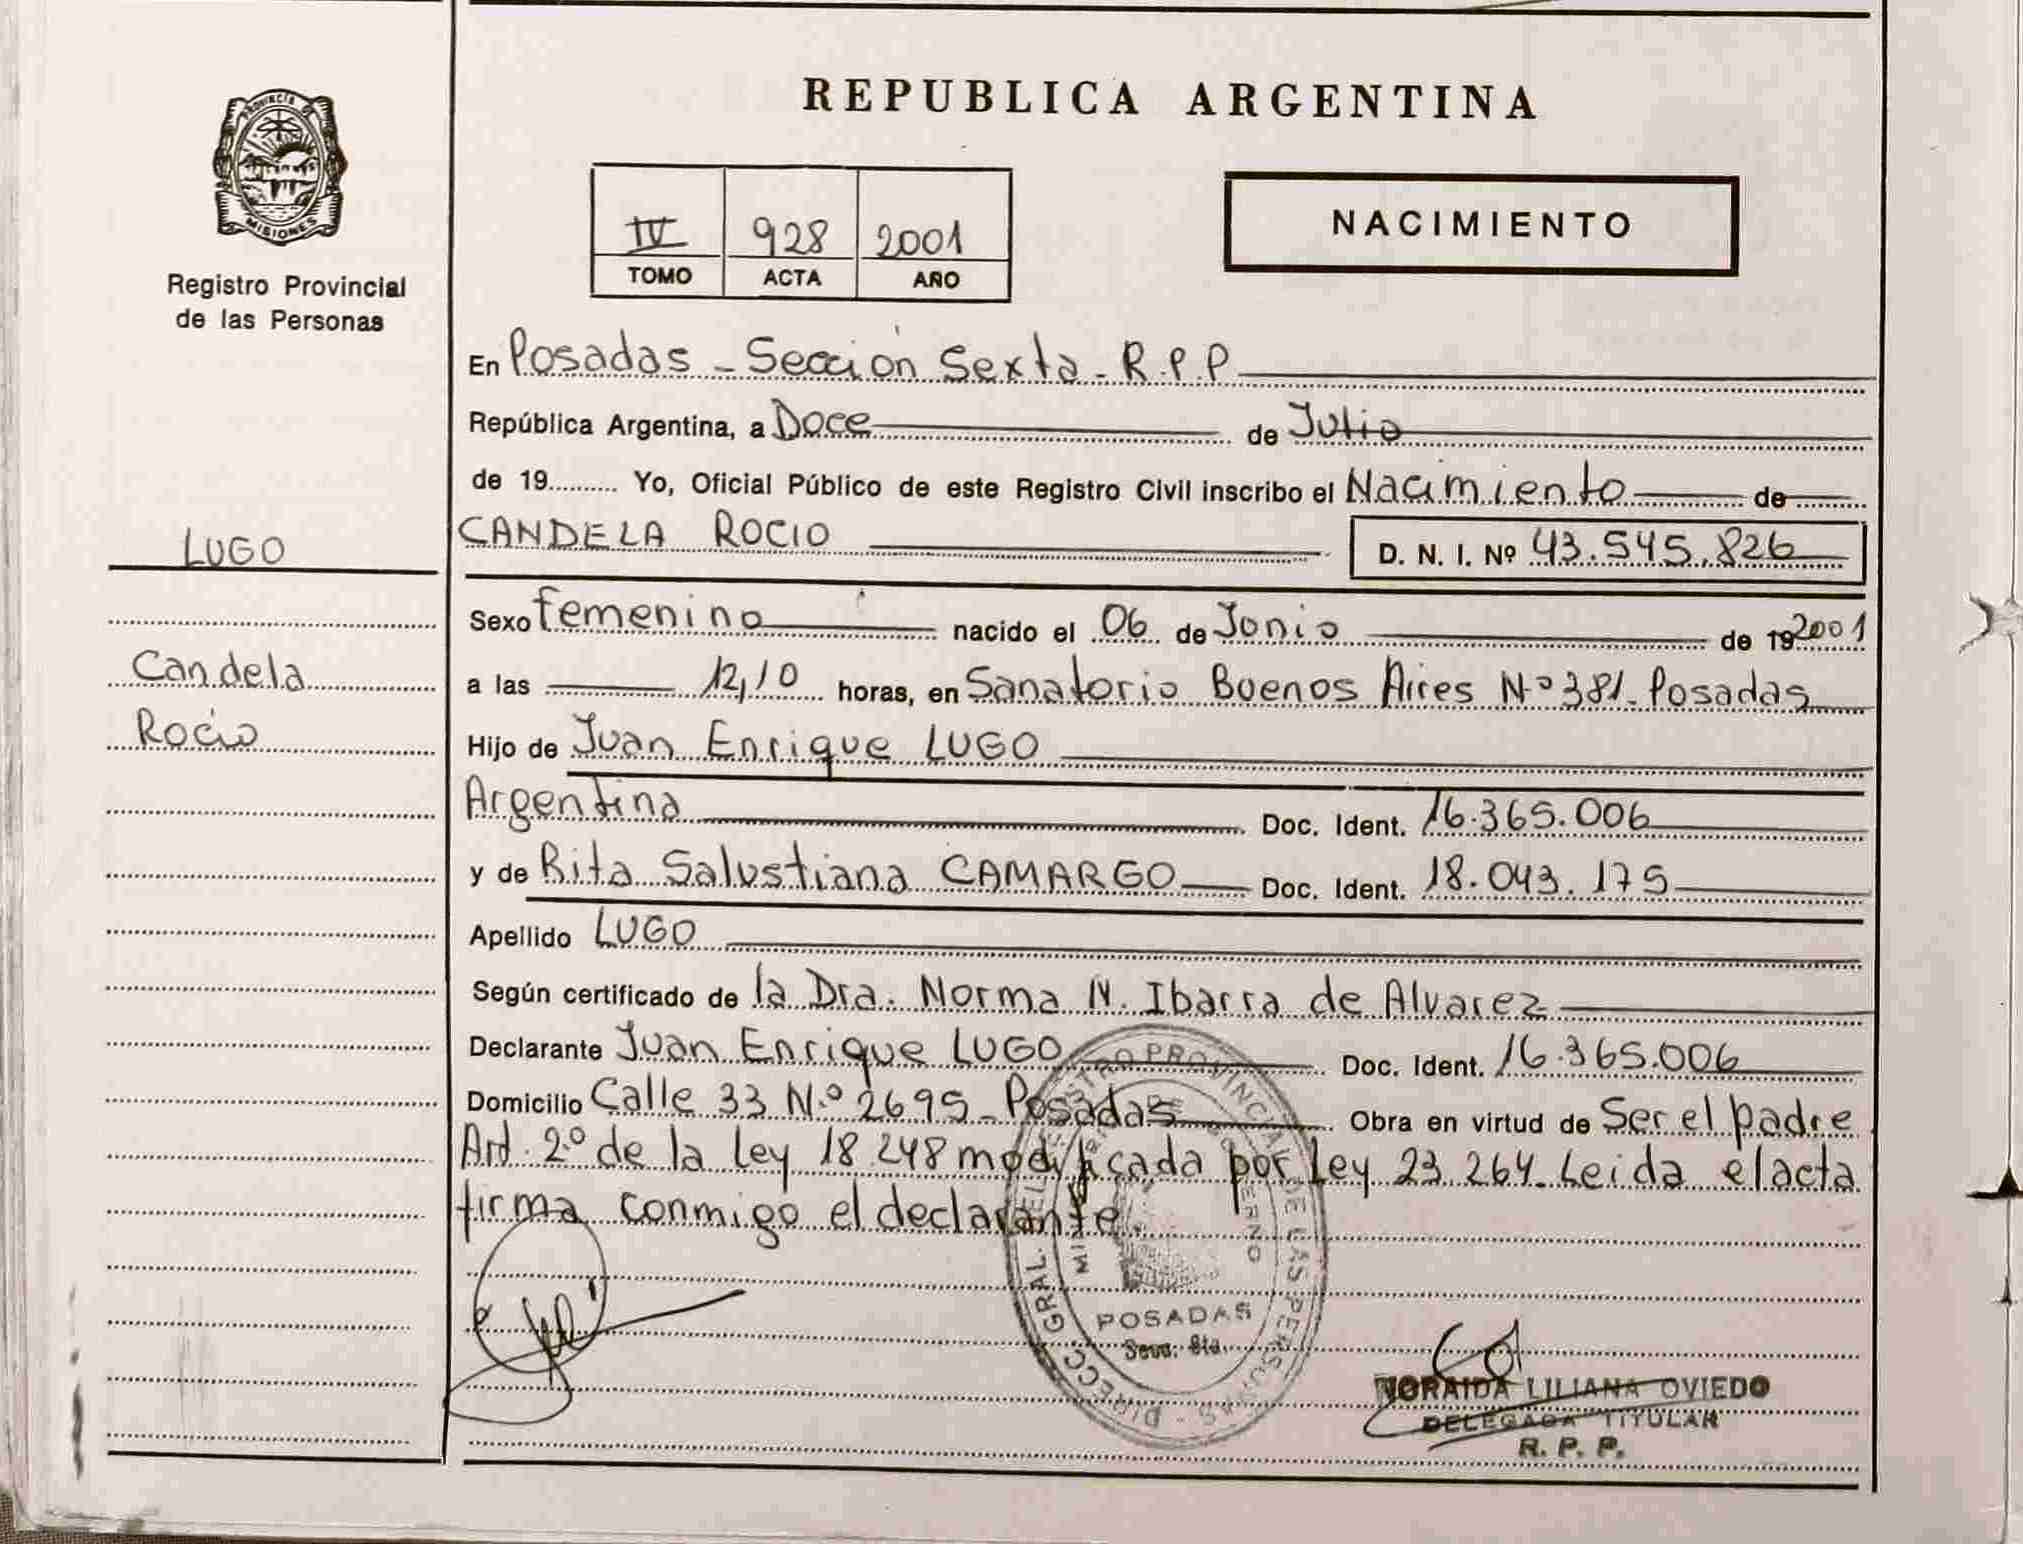 REPUBLICA ARGENTINA
PROVINCIA DE
MISIONES
Registro Provincial
de las Personas
IV 928 2001
TOMO ACTA AÑO
NACIMIENTO
En Posadas - Sección Sexta - R.P.P
República Argentina, a Doce de Julio
de 19......... Yo, Oficial Público de este Registro Civil inscribo el Nacimiento de
LUGO
CANDELA ROCIO D. N. I. Nº 43.545.826
Sexo Femenino nacido el 06 de Junio de 19 2001
Candela
a las 12,10 horas, en Sanatorio Buenos Aires Nº 381 - Posadas
Rocio
Hijo de Juan Enrique LUGO
Argentina Doc. Ident. 16.365.006
y de Rita Salustiana CAMARGO Doc. Ident. 18.043.175
Apellido LUGO
Según certificado de la Dra. Norma N. Ibarra de Alvarez
Declarante Juan Enrique LUGO Doc. Ident. 16.365.006
Domicilio Calle 33 N.º 2695 - Posadas Obra en virtud de Ser el padre
Art. 2º de la Ley 18.248 modificada por Ley 23.264. Leida el acta
firma conmigo el declarante.
DIRECC. GRAL. DEL REGISTRO PROVINCIAL DE LAS PERSONAS
GOBIERNO
POSADAS
Secc. 6ta.
ZORAIDA LILIANA OVIEDO
DELEGADA TITULAR
R. P. P.